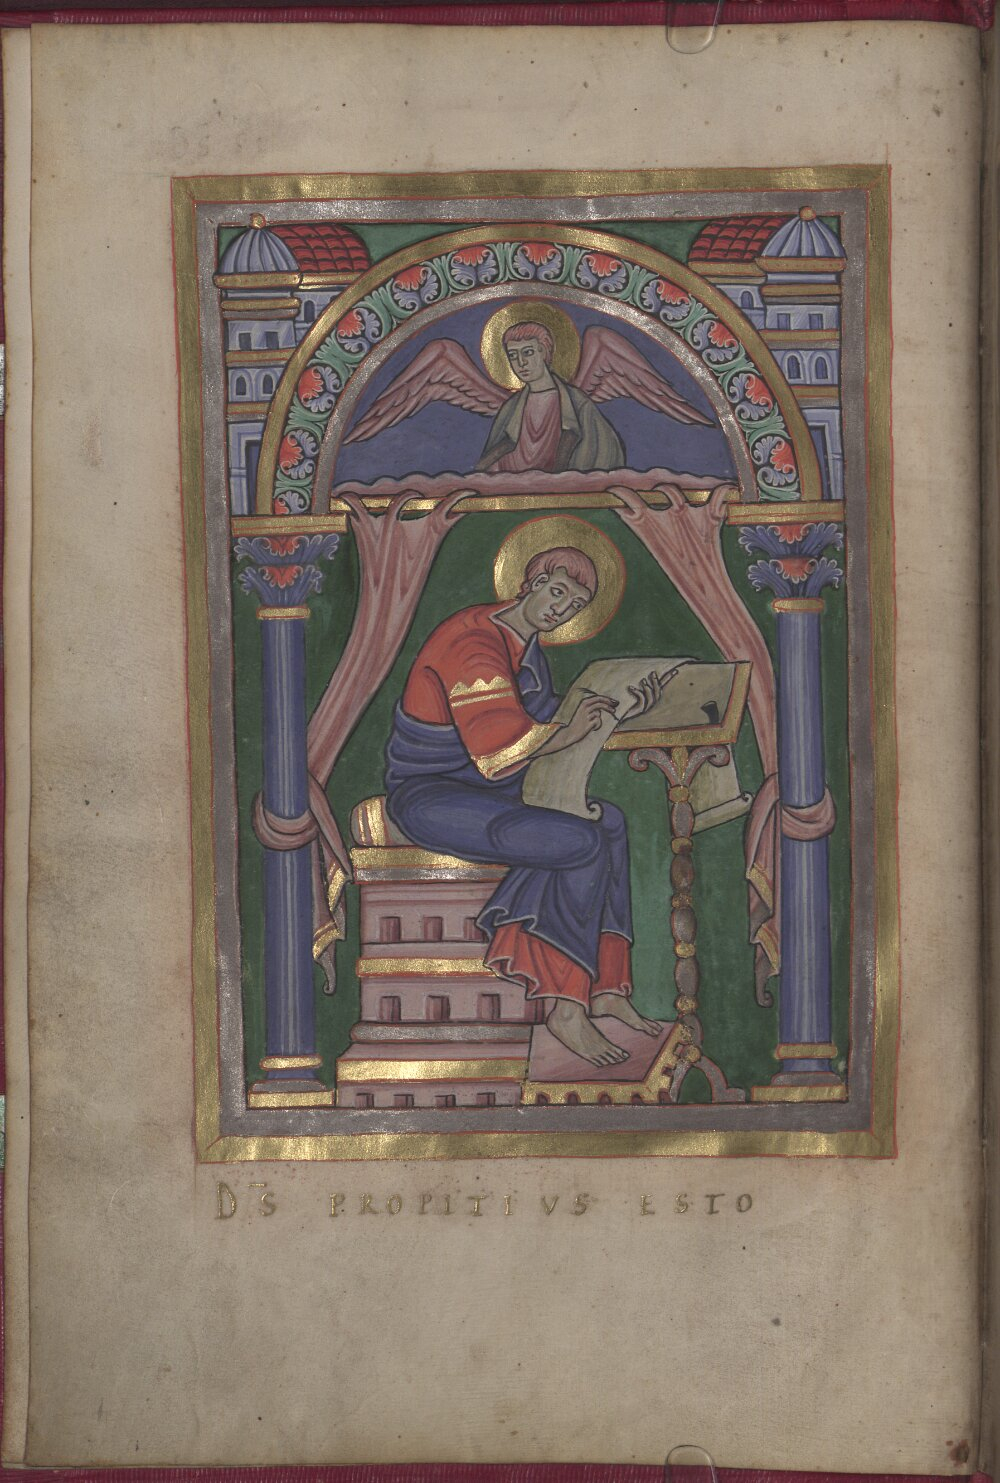 D̅S PROPITIVS ESTO